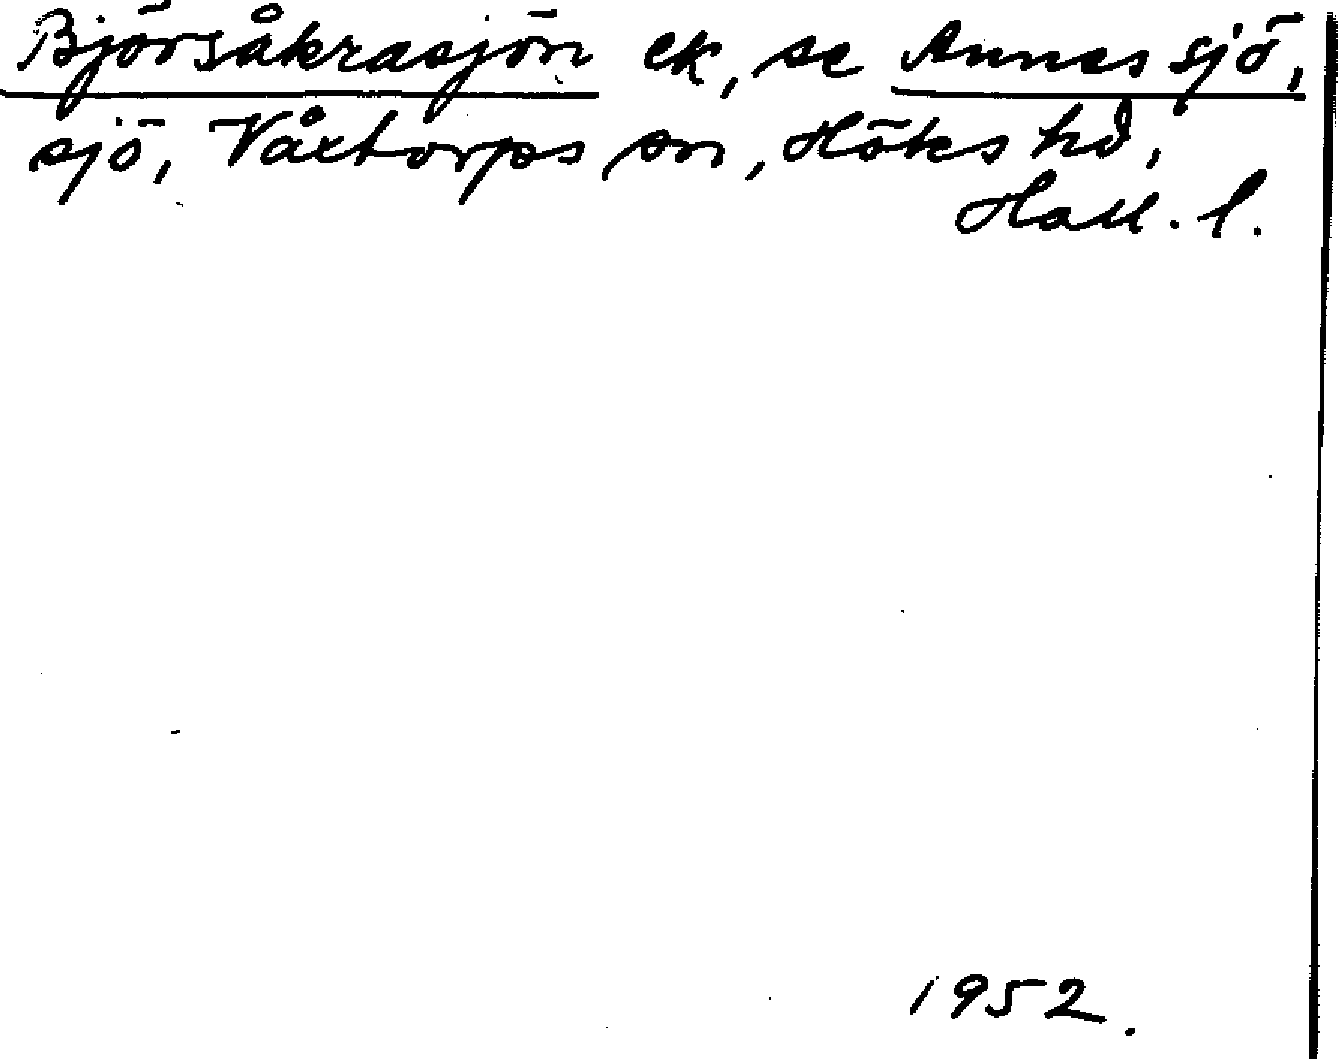 Björsåkrasjön ek, se Annes sjö,
sjö, Våxtorps sn, Höks hd,
Hall. l.
1952.